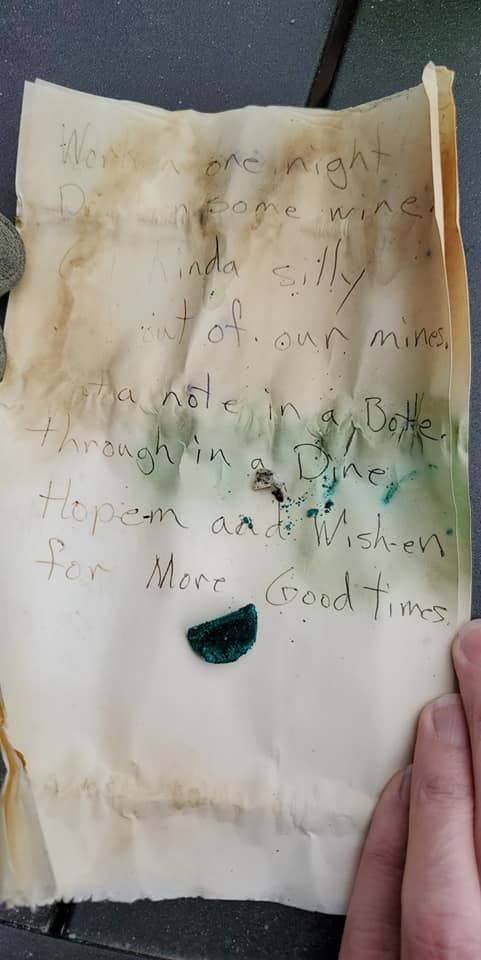 one night
some wine.
kinda silly
out of our mines.
a note in a Botte.
through in a Dine
Hope-m and Wish-en
for More Good times.